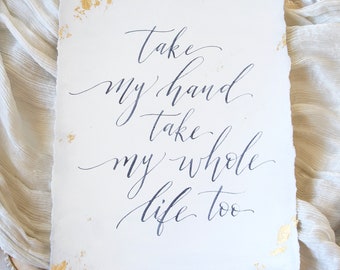 take
my hand
take
my whole
life too